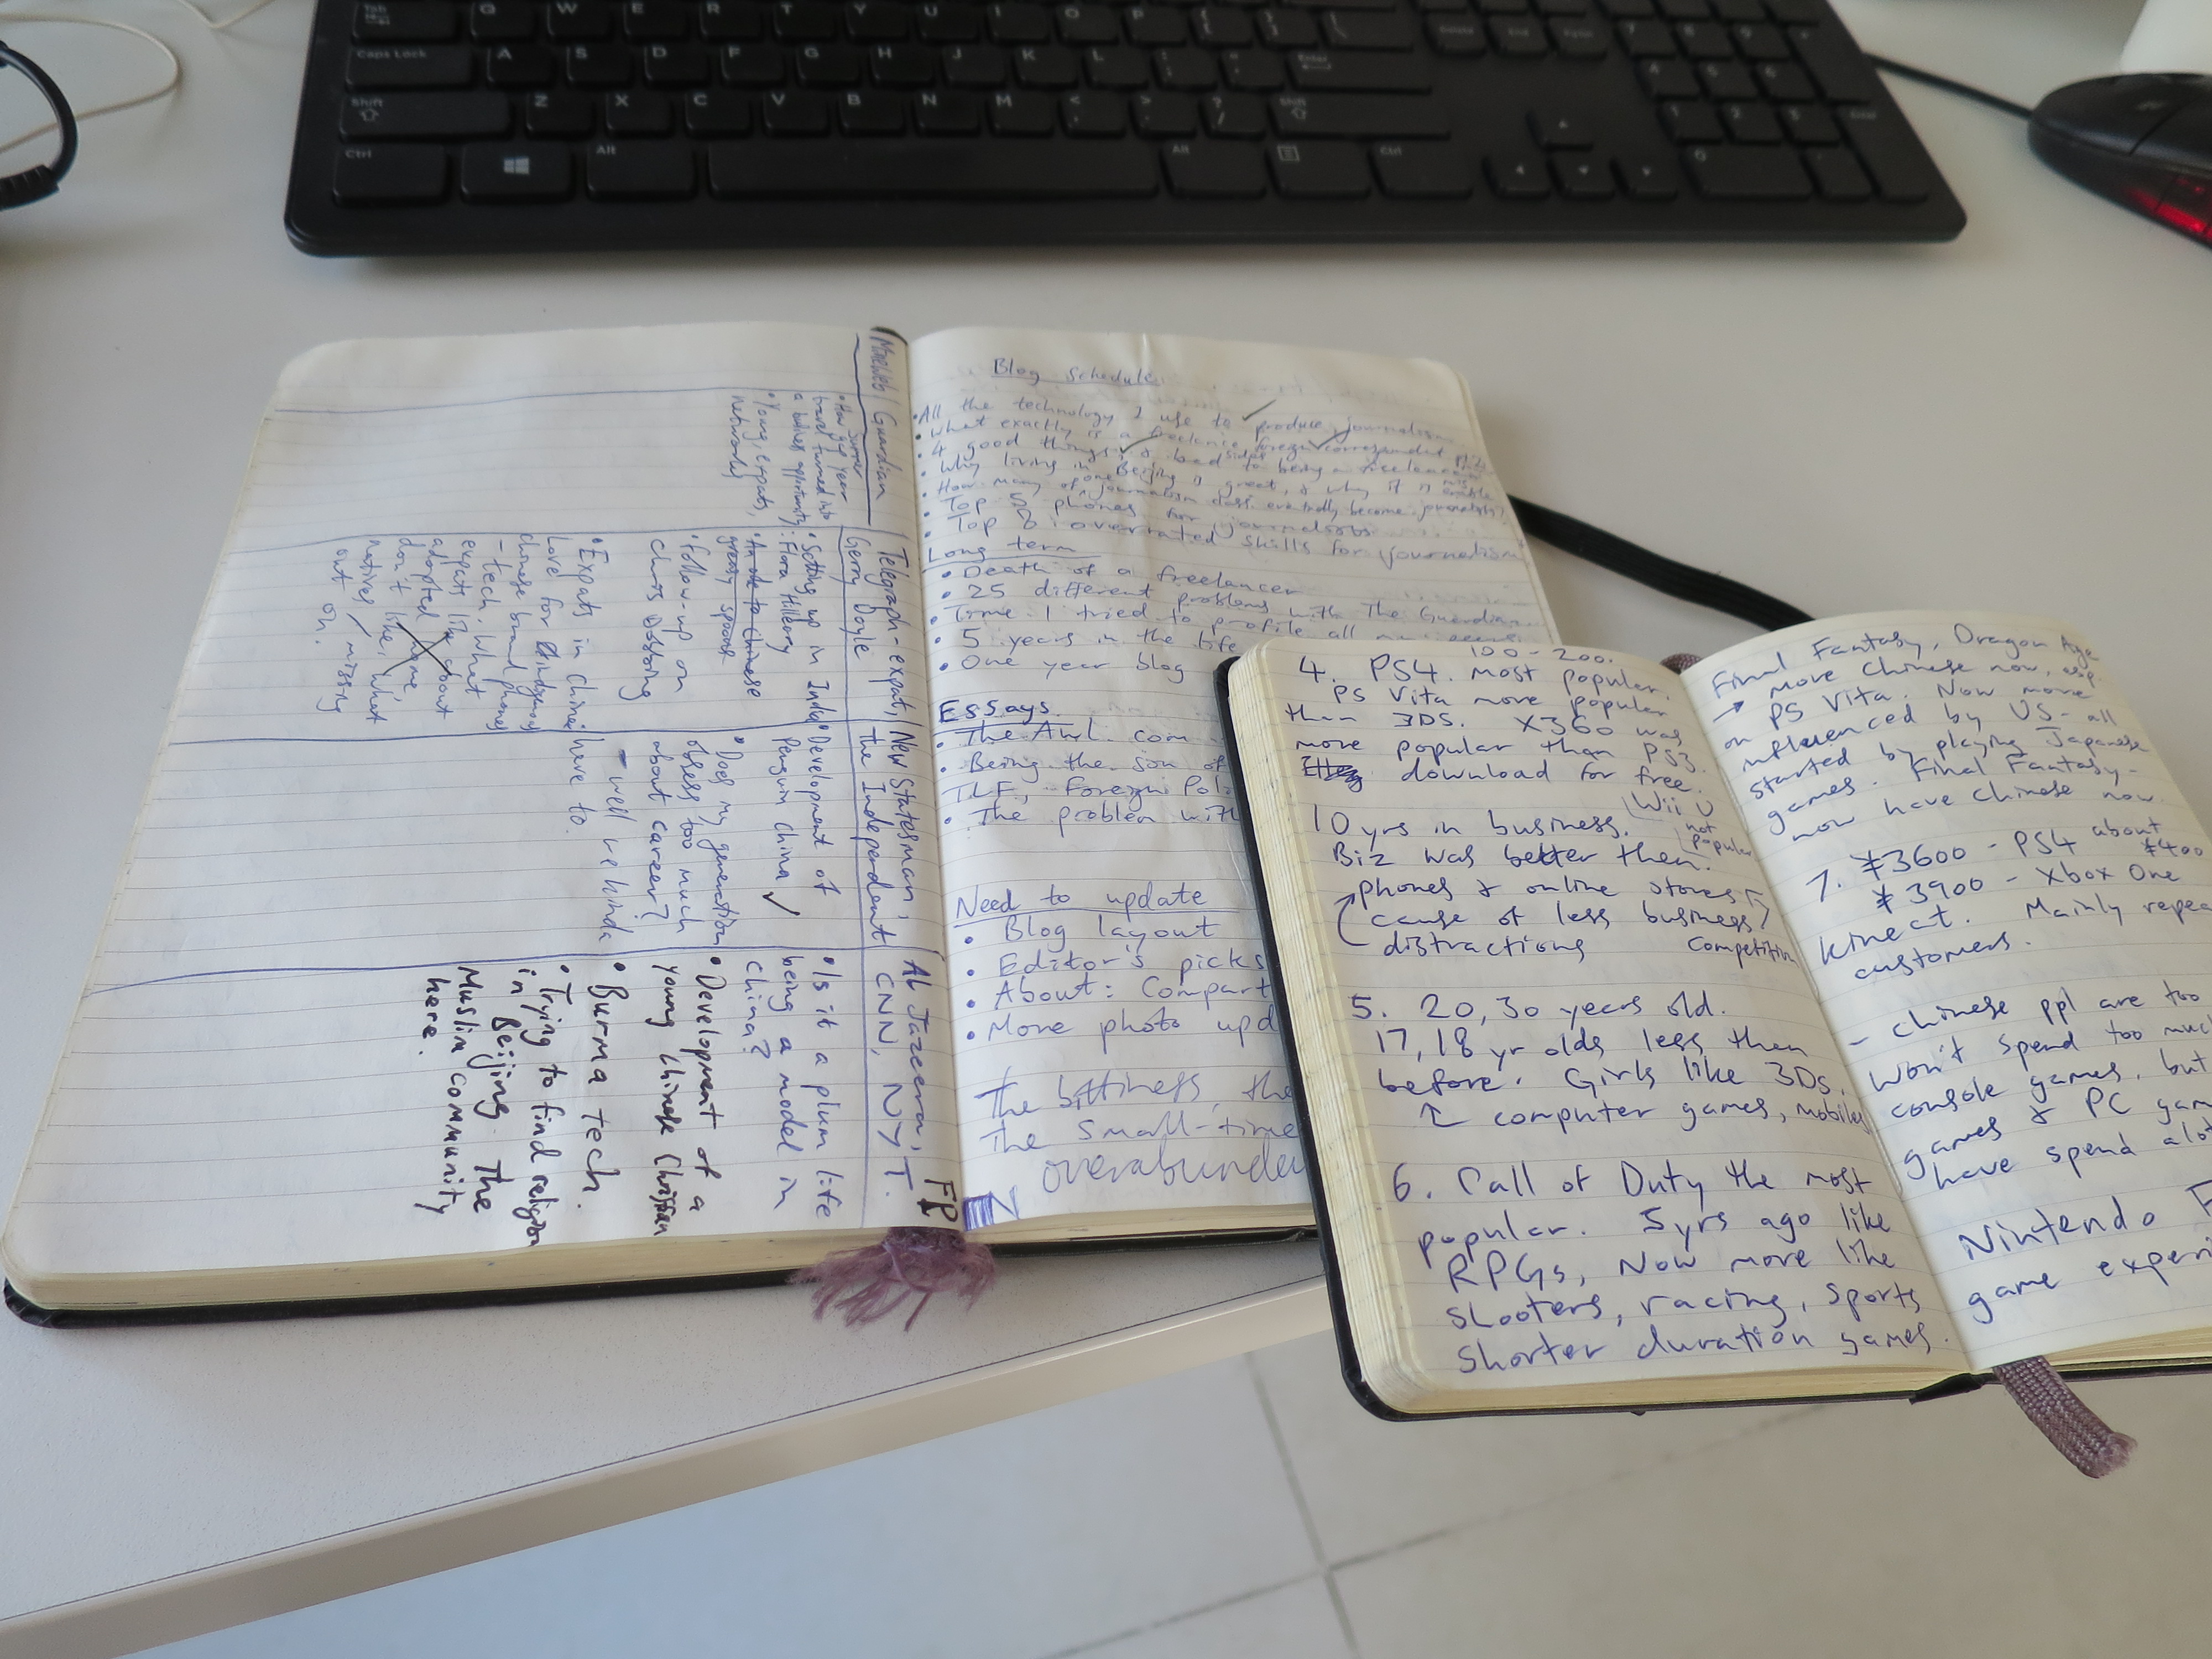 Tab
Q W E R T Y U I O P { }
[ ]
Caps Lock A S D F G H J K L : "
; '
Enter
Shift Z X C V B N M < > ?
, . /
Shift
Ctrl Alt Alt Ctrl
Delete End
7 8 9 +
4 5 6
1 2 3 Enter
0 .
Guardian
• How gap year
travel turned into
a business opportunity
• Young expats,
Networking
Telegraph - expat,
Gerry Doyle
• Setting up in India:
Flora Hillbory
• An ode to Chinese
greasy spoons
• Follow-up on
Chris Dobbing
• Expats in China
love for indigenous
Chinese brand phones
- tech. What
expats like about
adopted home,
don't like, what
natives / missing
out on.
New Statesman,
the Independent
• Development of
Penguin China ✓
• Does my generation
obsess too much
about career?
- well we kinda
have to.
Al Jazeera,
CNN, NYT.
FP
• Is it a plum life
being a model in
China?
• Development of a
young Chinese Christian
• Burma tech.
• Trying to find religion
in Beijing. The
Muslim community
here.
Blog Schedule
• All the technology I use to produce journalism
• What exactly is a freelance foreign correspondent
• 4 good things & bad sides to being a freelancer
• Why living in Beijing is great, & why it is
• How many of one journalism class eventually become journalists?
• Top 5 phones for journalists
• Top 8 overrated skills for journalism
Long term
• Death of a freelancer
• 25 different problems with The Guardian
• Time I tried to profile all my
• 5 years in the life
• One year blog
Essays
• The Awl. com
• Being the son of
TLF, Foreign Pol
• The problem with
Need to update
• Blog layout
• Editor's picks
• About: Compart
• More photo upd
The bittiness, the
The small-time
overabundan
100 - 200.
4. PS4. most popular.
PS Vita more popular
than 3DS. X360 was
more popular than PS3.
download for free.
Wii U
not
popular
10 yrs in business.
Biz was better then.
phones & online stores
cause of less business
distractions competition
5. 20, 30 years old.
17, 18 yr olds less than
before. Girls like 3Ds.
computer games, mobiles
6. Call of Duty the most
popular. 5yrs ago like
RPGs, Now more like
shooters, racing, sports
shorter duration games.
Final Fantasy, Dragon Age
→ more Chinese now, esp.
on PS Vita. Now more
influenced by US - all
started by playing Japanese
games. Final Fantasy -
now have Chinese now.
7. ¥3600 - PS4 about
¥400
¥3900 - Xbox One
Kinect. Mainly repea
customers.
- Chinese ppl are too
won't spend too much
console games, but
games & PC gam
have spend alot
Nintendo
game experi